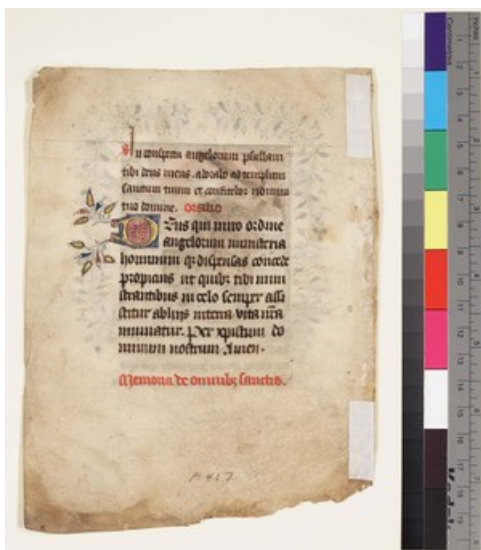 In conspectu angelorum psallam
tibi deus meus. adorabo ad templum
sanctum tuum et confitebor nomini
tuo domine. Oratio
Deus qui miro ordine
angelorum ministeria
hominum qz dispensas concede
propicius ut quibz tibi mini
strantibus in celo semper assi
stitur ab hijs in terra vita nr̄a
muniatur. Per xpistum do
minum nostrum Amen.
Memoria de omnibz sanctis.
M 457
Inches
Centimetres